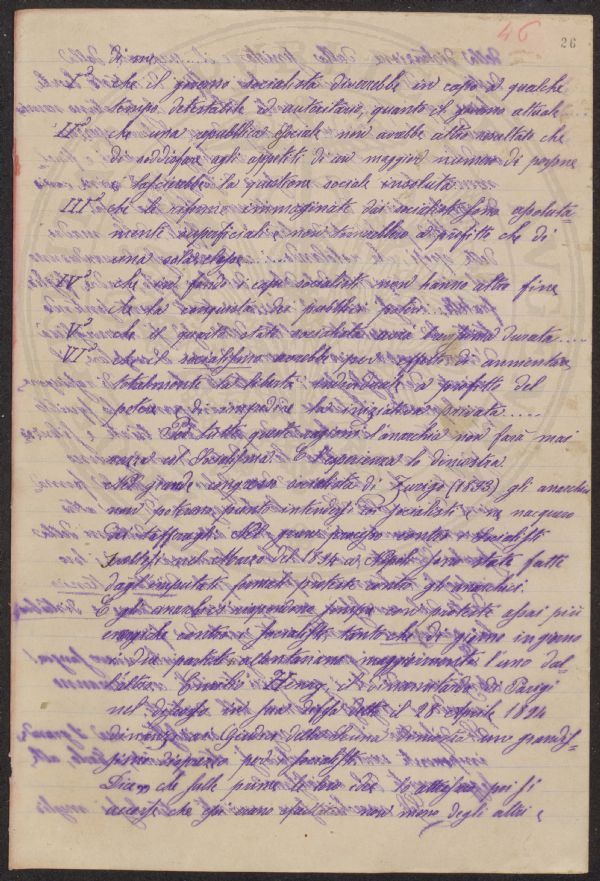 46
26
Di me
I° che il governo socialista diverrebbe in capo a qualche
tempo detestabile ed autoritario, quanto il governo attuale....
II° che una repubblica Sociale non avrebbe altro resultato che
di soddisfare agli appetiti di un maggior numero di persone
e lascierebbe la questione sociale insoluta
III° che le riforme immaginate dai socialisti sono assoluta-
mente superficiali e non a profitto che di
una sola classe.
IV° che in fondo i capi socialisti non hanno altro fine
che la conquista dei pubblici poteri....
V° che il quarto stato socialista avrà durata....
VI° che il socialismo avrebbe per effetto di aumentare
totalmente la libertà individuale a profitto del
potere e di impedire la iniziativa privata....
Per tutte queste ragioni l'anarchia non farà mai
col Socialismo. E l'esperienza lo dimostra
Nel grande congresso socialista di Zurigo (1893) gli anarchici
non poterono punto intendersi coi Socialisti e ne nacquero
dei tafferugli. Nel gran processo contro i Socialisti
svoltosi nel Marzo del 1894 a Napoli sono state fatte
dagli imputati formali proteste contro gli anarchici.
E gli anarchici risposero sempre con proteste assai più
energiche contro i Socialisti, tanto che di giorno in giorno
i due partiti allontanano maggiormente l'uno dal-
l'altro. Emilio Henry, il dinamitardo di Parigi
nel discorso in sua difesa detto il 28 Aprile 1894
dinnanzi ai Giudici della Senna dimostrò uno grandis-
simo disprezzo per i Socialisti.
Dice, che sulle prime le loro idee lo attirano, poi si
accorse che essi erano non meno degli altri e